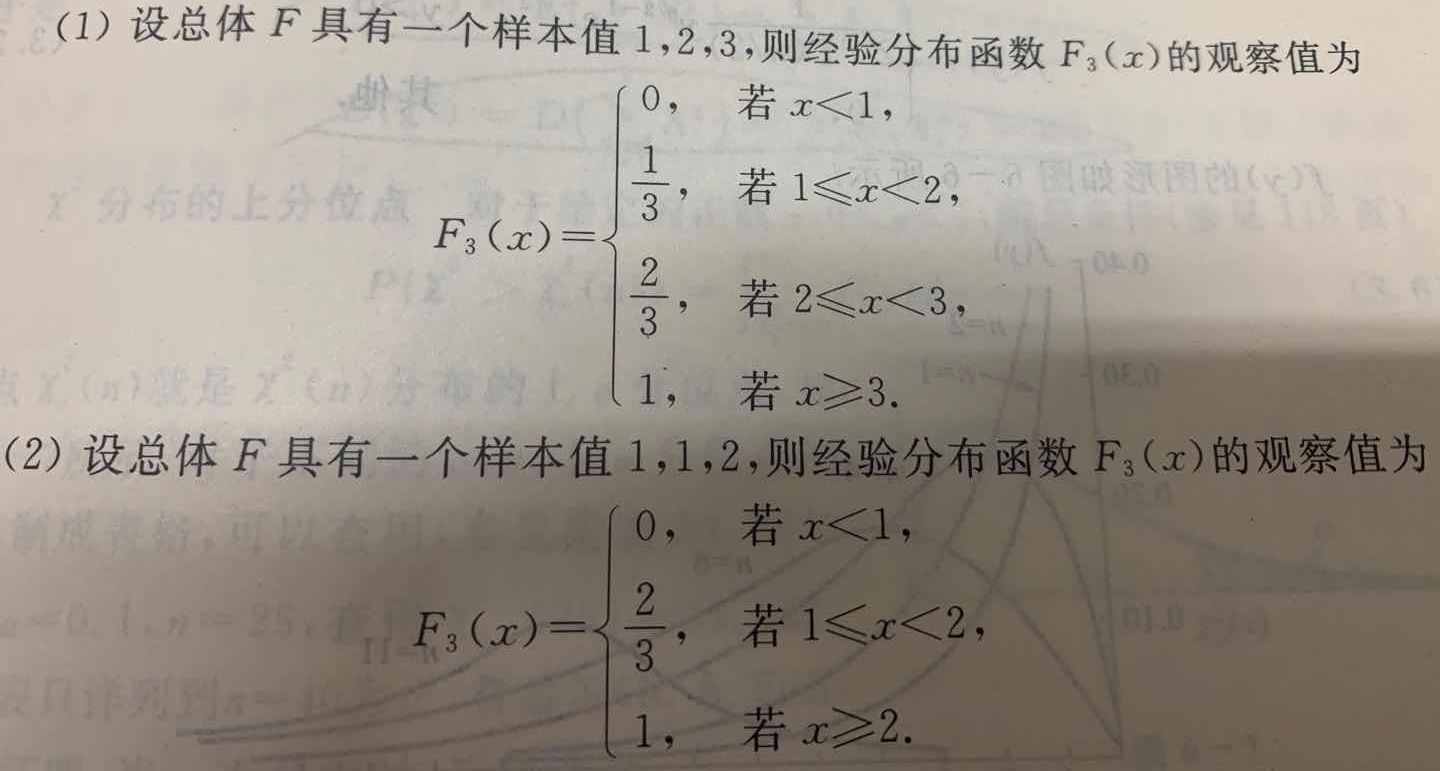 (1) 设总体 F 具有一个样本值 1,2,3,则经验分布函数 F₃(x)的观察值为
F₃(x)=
0, 若 x<1,
1/3, 若 1⩽x<2,
2/3, 若 2⩽x<3,
1, 若 x⩾3.
(2) 设总体 F 具有一个样本值 1,1,2,则经验分布函数 F₃(x)的观察值为
F₃(x)=
0, 若 x<1,
2/3, 若 1⩽x<2,
1, 若 x⩾2.